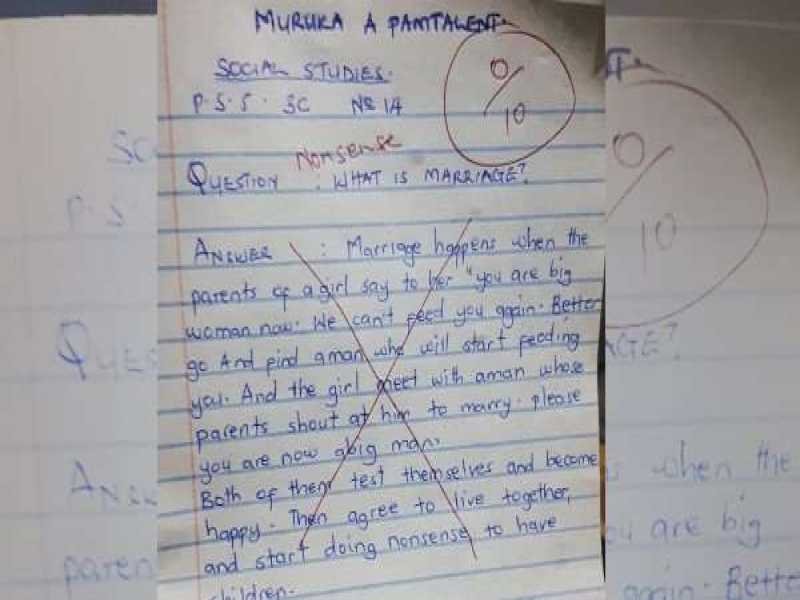 MURUKA A PAMTALENT.
SOCIAL STUDIES.
P.S.5. 3C No 1A
0/10
Nonsense
QUESTION : WHAT IS MARRIAGE?
ANSWER : Marriage happens when the
parents of a girl say to her "you are big
woman now. We can't feed you again. Better
go And find a man who will start feeding
you. And the girl meet with a man whose
parents shout at him to marry. please
you are now a big man.
Both of them test themselves and become
happy. Then agree to live together,
and start doing nonsense to have
children.